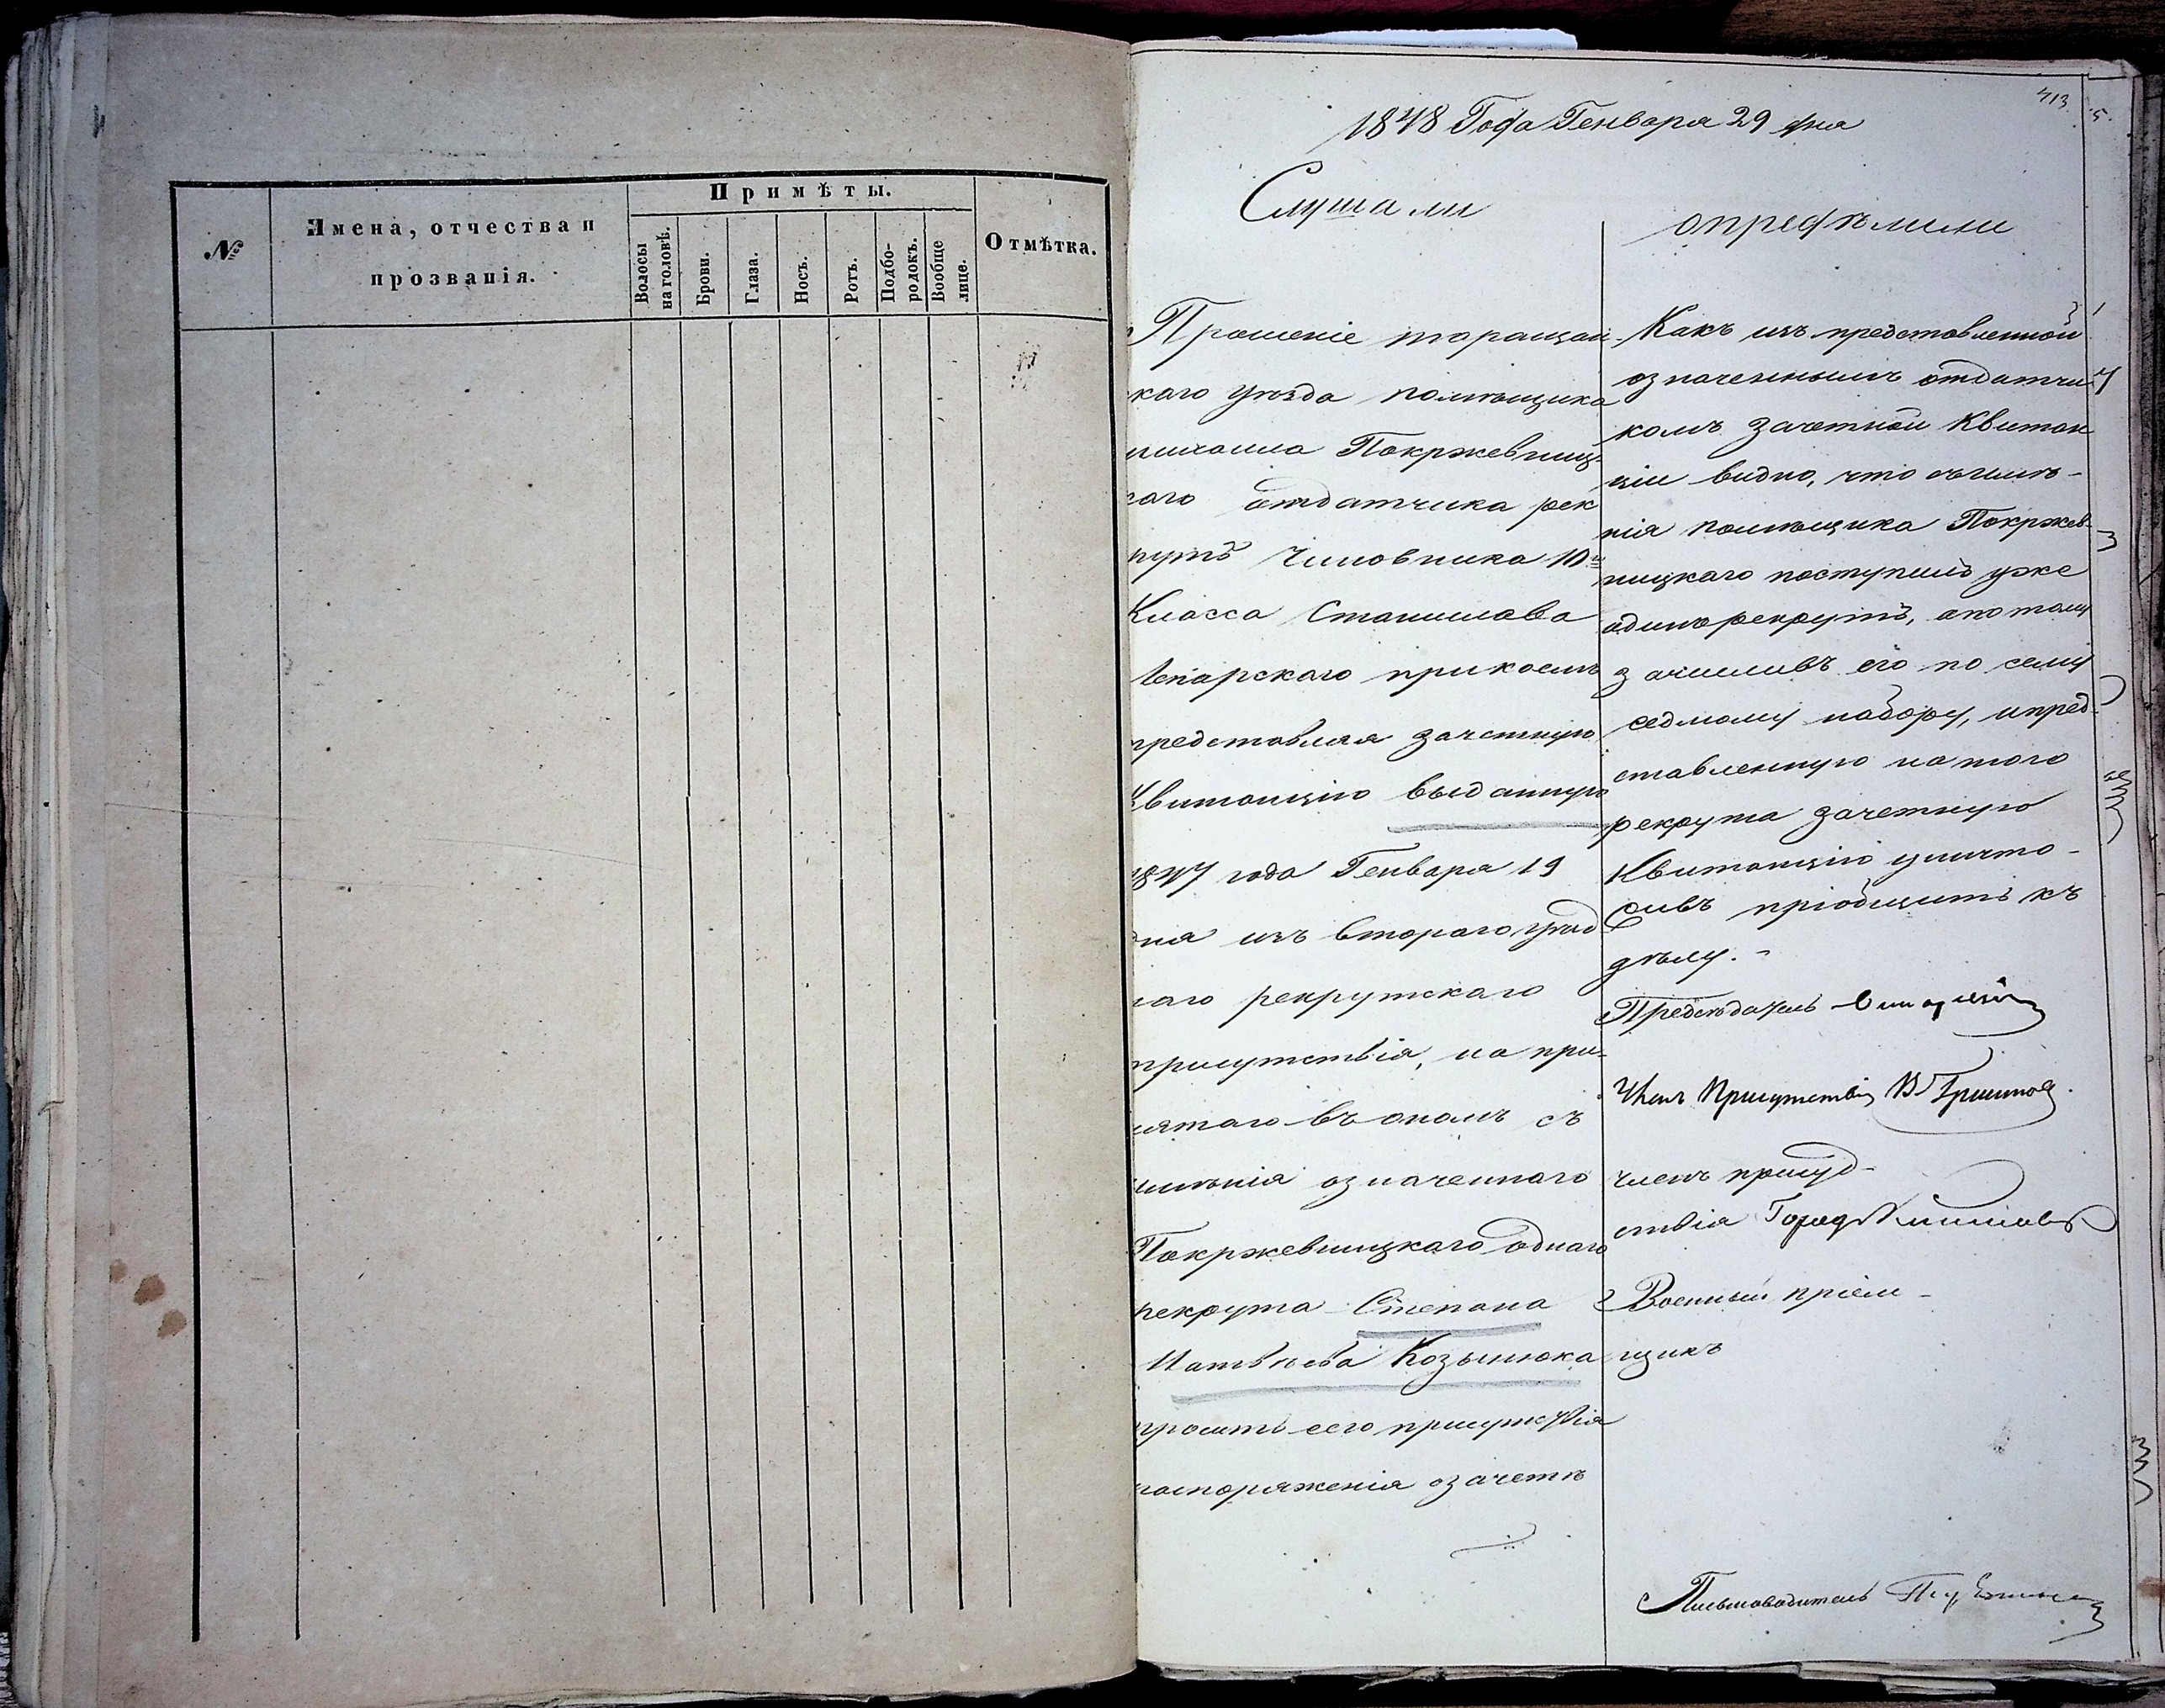 №
Имена, отчества и
прозванія.
Примѣты.
Волосы
на головѣ.
Брови.
Глаза.
Носъ.
Ротъ.
Подбо-
родокъ.
Вообще
лице.
Отмѣтка.
413
1848 Года Генваря 29 дня
Слушали
Прошеніе таращан-
каго уѣзда помѣщика
михаила Покржевниц-
каго отдатчика рек
рутъ Чиновника 10го
Класса Станислава
при коемъ
представляя зачетную
Квитанцію выданную
1847 года Генваря 19
дня изъ втораго уѣзд
наго рекрутскаго
присутствія, на при-
нятаго въ ономъ съ
имѣнія означеннаго
Покржевницкаго одного
рекрута Степана
Матвѣева Козынюка
просить сего присутствія
распоряженія о зачетѣ
опредѣлили
Какъ изъ представленной
означеннымъ отдатчи
комъ зачетной Квитан
ціи видно, что съ имѣ-
нія помѣщика Покржев-
ницкаго поступилъ уже
одинъ рекрутъ, а потому
зачисливъ его по сему
седмому набору, и пред-
ставленную на того
рекрута зачетную
Квитанцію уничто-
живъ пріобщить къ
дѣлу.-
Предсѣдатель
Членъ Присутствія
членъ присуд-
ствія Город
Военный пріем-
щикъ
Письмоводитель